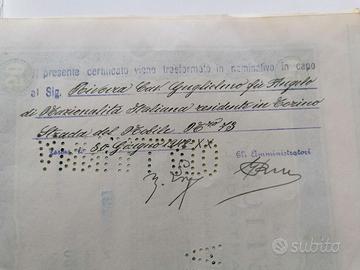 Il presente certificato viene trasformato in nominativo in capo
al Sig. Riviera Cav. Guglielmo fu Angelo
di Nazionalità Italiana residente in Torino
Strada del Nobile N.ro 73
30 Giugno
Gli Amministratori
subito